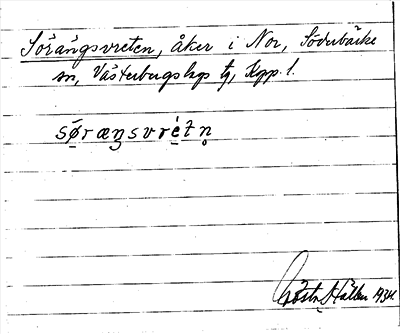 Sörängsvreten, åker i Nor, Söderbärke
sn, Västerbergslags tg, Kpp. l.
sǿræŋsvrét n̥
Gösta Hallen 1934